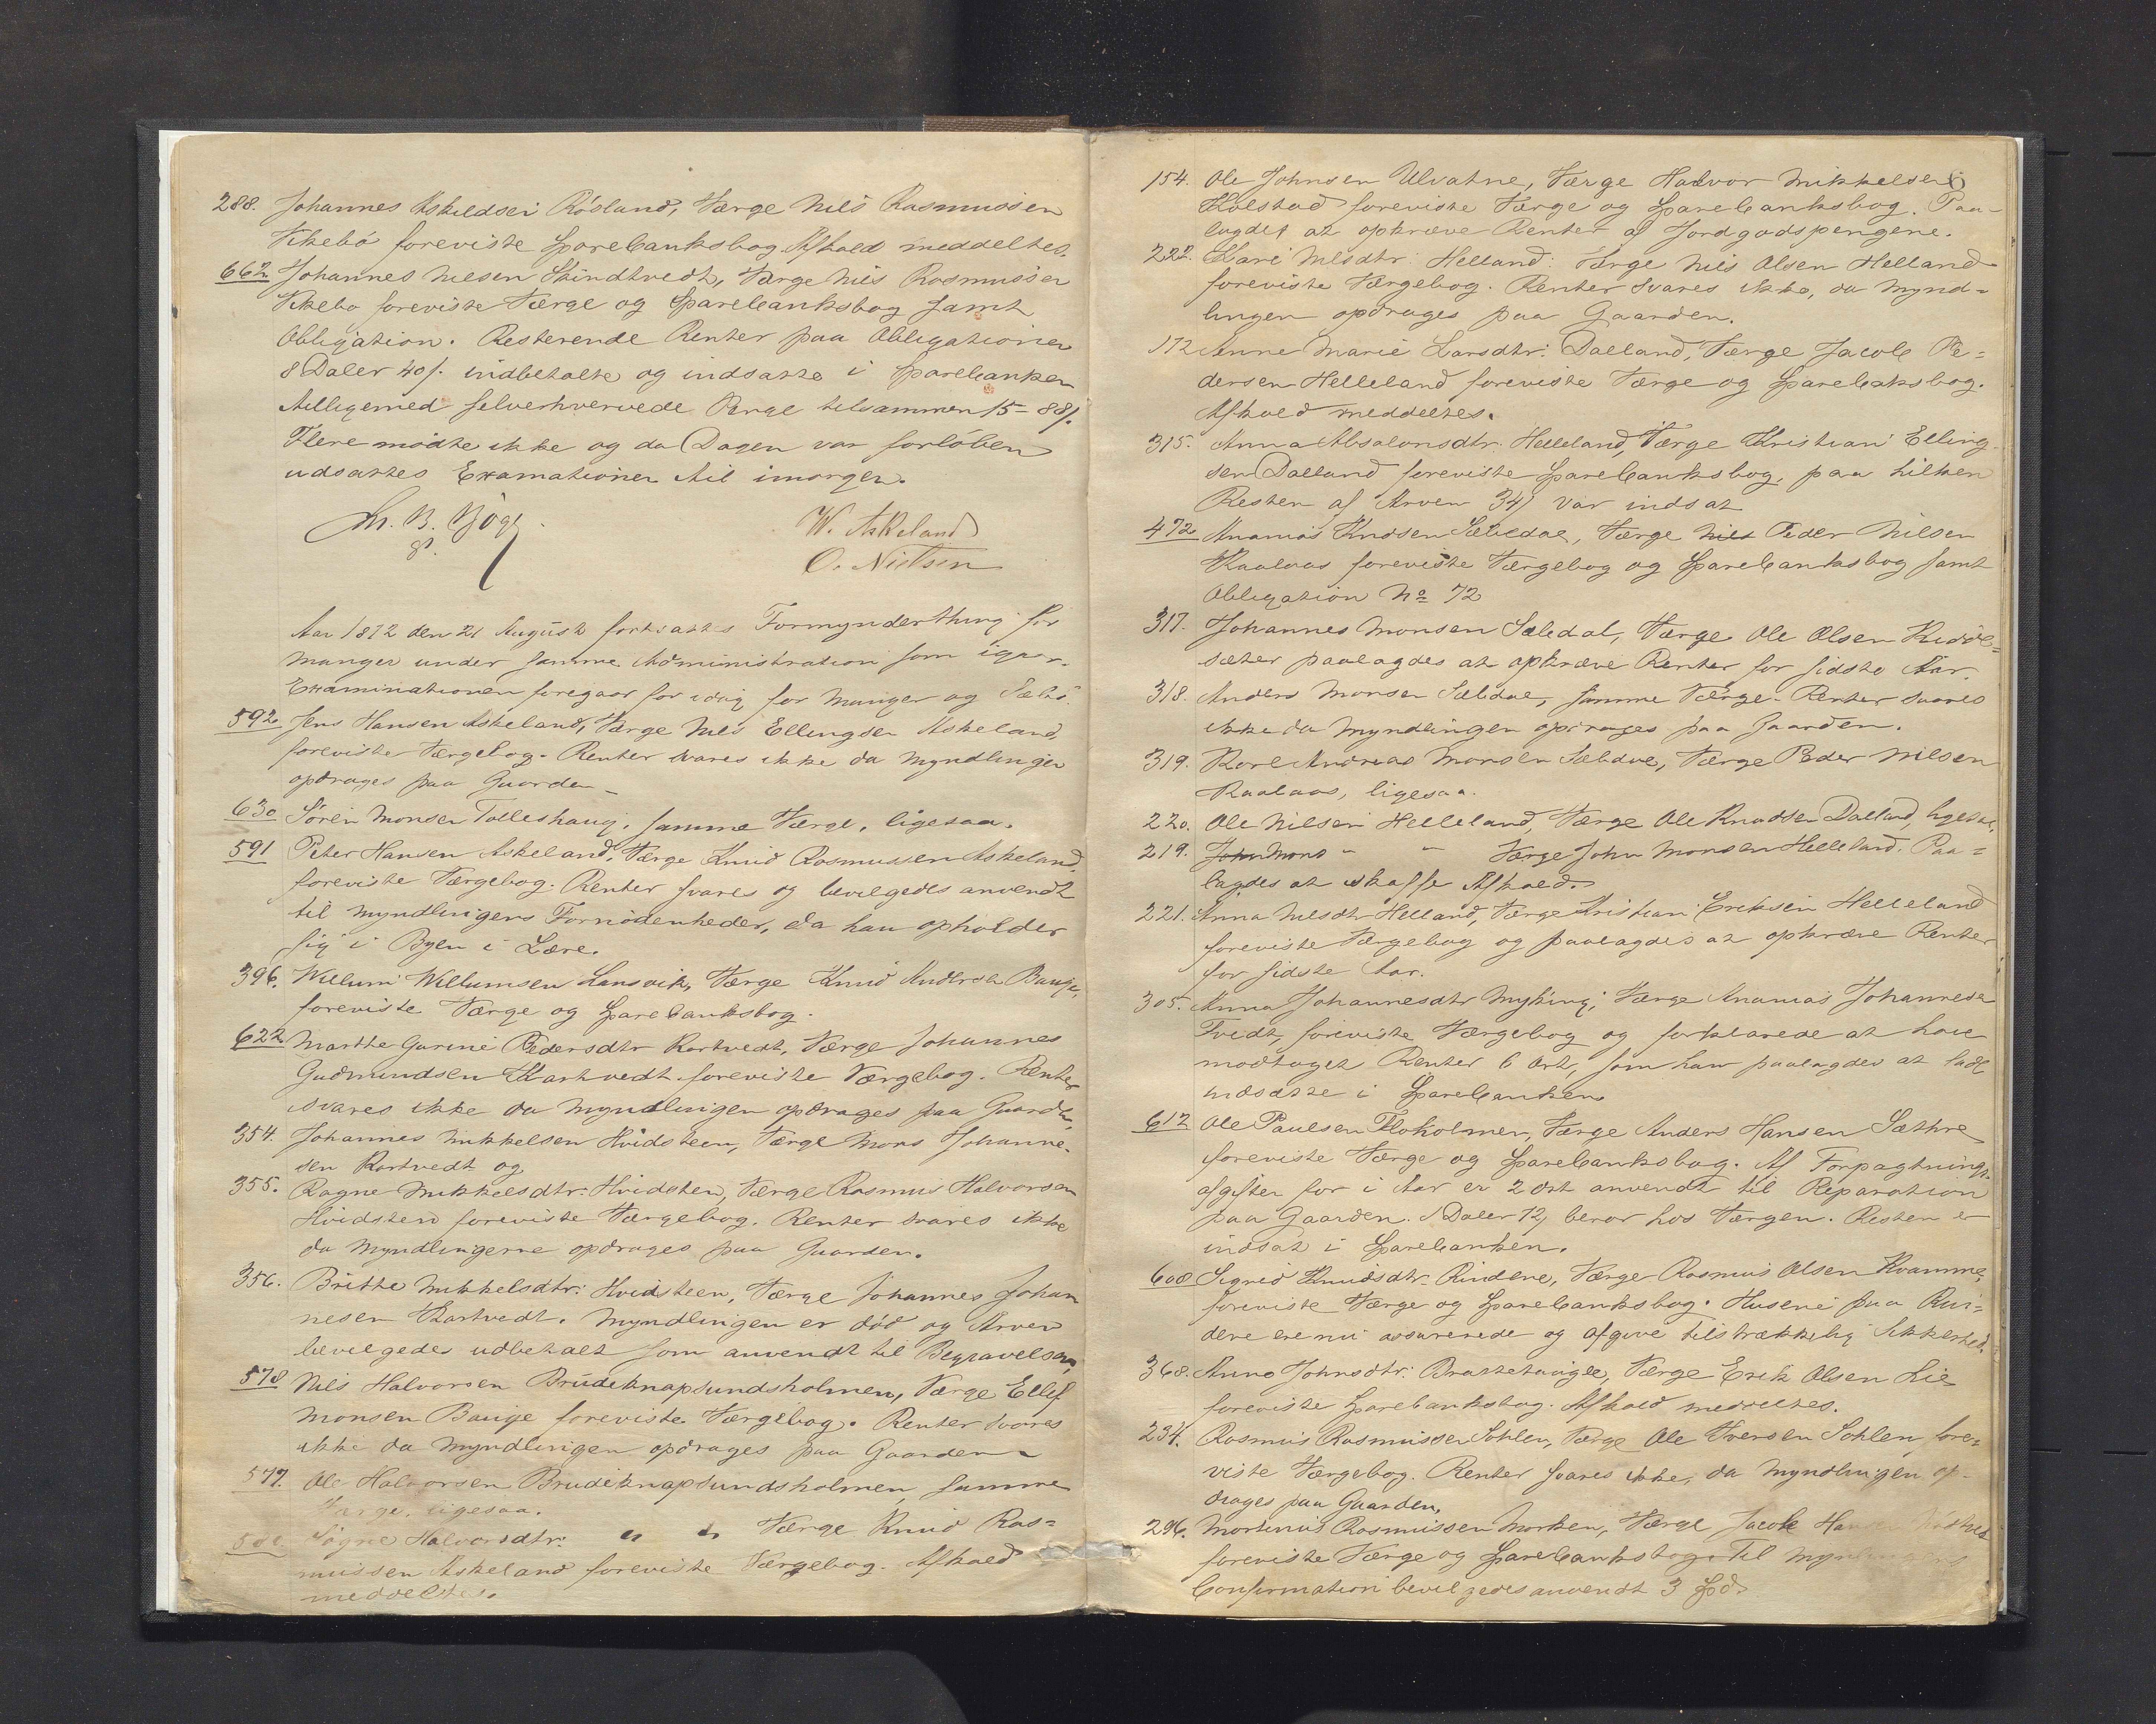 288. Johannes Askeldsen Rösland, Værge Nils Rasmussen
Vikebö foreviste Sparebanksbog. Afkald meddeltes.
662 Johannes Nilsen Skindtvedt, Værge Nils Rasmussen
Vikebö foreviste Værge og Sparebanksbog samt
Obligation. Resterende Renter paa Obligationen
8 Daler 40 s. indbetalte og indsatte i Sparebanken
tilligemed selverhvervede Penge tilsammen 15 - 88 s.
Flere mödte ikke og da Dagen var forlöben
udsattes Examationen til imorgen.
M. B. Bögh
W. Askeland
O. Nielsen
Aar 1872 den 21 August fortsattes Formynderthing for
Manger under samme Administration som igaar.
Examinationen foregaar for idag for Manger og Sæbö.
592. Jens Hansen Askeland, Værge Nils Ellingsen Askeland,
foreviste Værgebog. Renter svares ikke da Myndlingen
opdrages paa Gaarden
630 Sören Monsen Tolleshaug, samme Værge, ligesaa.
591 Peter Hansen Askeland, Værge Knud Rasmussen Askeland,
foreviste Værgebog. Renter svares og bevilgedes anvendt
til Myndlingens Fornödenheder, da han opholder
sig i Byen i Lære.
396. Willum Willumsen Lansvik, Værge Knud Andersen Bauge,
foreviste Værge og Sparebanksbog.
622 Marthe Gurine Pedersdtr Kartvedt, Værge Johannes
Gudmundsen Kartvedt foreviste Værgebog. Renter
svares ikke da Myndlingen opdrages paa Gaarden,
354. Johannes Mikkelsen Hvidsteen, Værge Mons Johanne-
sen Kartvedt og
355. Ragne Mikkelsdtr: Hvidsten, Værge Rasmus Halvorsen
Hvidsten foreviste Værgebog. Renter svares ikke
da Myndlingerne opdrages paa Gaarden.
356. Brithe Mikkelsdtr: Hvidsteen, Værge Johannes Johan
nesen Kartvedt. Myndlingen er död og Arven
bevilgedes udbetalt som anvendt til Begravelsen,
578 Nils Halvorsen Brudeknapsundsholmen, Værge Ellef
Monsen Bauge foreviste Værgebog. Renter svares
ikke da Myndlingen opdrages paa Gaarden
579. Ole Halvorsen Brudeknapsundsholmen, samme
Værge, ligesaa.
580. Halvorsdtr: " " Værge Knud Ras=
mussen Askeland foreviste Værgebog. Afkald
meddeltes.
154. Ole Johnsen Ulvatne, Værge Halvor Mikkelsen
Kolstad foreviste Værge og Sparebanksbog. Paa-
lagdes at opkræve Renter af Jordgodspengene.
222. Kari Nilsdtr: Helland: Værge Nils Olsen Helland
foreviste Værgebog. Renter svares ikke, da Mynd=
lingen opdrages paa Gaarden.
172 Anne Marie Larsdtr: Dalland, Værge Jacob Pe=
dersen Helleland foreviste Værge og Sparebaksbog.
Afkald meddeltes.
315. Anna Absalonsdtr. Helleland, Værge Kristian Elling
sen Dalland foreviste Sparebanksbog, paa hilken
Resten af Arven 34 s var indsat
472 Ananias Knudsen Sæledal, Værge Nils Peder Nilsen
Kaalaas foreviste Værgebog og Sparebanksbog samt
Obligation No 72
317. Johannes Monsen Sæledal, Værge Ole Olsen
sæter paalagdes at opkræve Renter for sidste Aar.
318. Anders Monsen Sæledal, samme Værge. Renter svares
ikke da Myndlingen opdrages paa Gaarden.
319. Karl Andreas Monsen Sæledal, Værge Peder Nilsen
Kaalaas, ligesaa.
220. Ole Nilsen Helleland, Værge Ole Knudsen Dalland, ligesaa,
219. John Mons " " Værge John Monsen Helleland. Paa=
lagdes at skaffe Afkald.
221. Anna Nilsdtr Helland, Værge Kristian Eriksen Helleland
foreviste Værgebog og paalagdes at opkræve Renter
for sidste Aar.
305. Anna Johannesdtr Myking, Værge Ananias Johannesen
Tvedt, foreviste Værgebog og forklarede at have
modtaget Renter 6 Ort, som han paalagdes at lade
indsætte i Sparebanken
612 Ole Paulsen Floholmen, Værge Anders Hansen Sæthre
foreviste Værge og Sparebanksbog. Af Forpagtnings-
afgiften for i Aar er 2 Ort anvendt til Reparation
paa Gaarden. 1 Daler 12 s beror hos Værgen. Resten er
indsat i Sparebanken.
608 Sigrid Knudsdtr. Rindene, Værge Rasmus Olsen Kvamme,
foreviste Værge og Sparebanksbog. Husene paa Rin=
dene ere nu assurerede og afgive tilstrækkelig Sikkerhed.
368. Anna Johnsdtr. Brattetaugle, Værge Erik Olsen Lie
foreviste Sparebanksbog. Afkald meddeltes.
234. Rasmus Rasmussen Sohlen, Værge Ole Iversen Sohlen fore=
viste Værgebog. Renter svares ikke, da Myndlingen op-
drages paa Gaarden,
296. Martinus Rasmussen Morken, Værge Jacob
foreviste Værge og Sparebanksbog. Til Myndlingens
Confirmation bevilgedes anvendt 3 Spd.